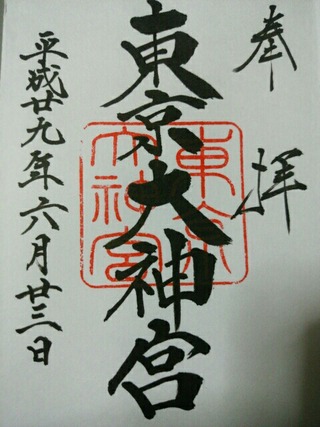 奉拝
東京大神宮
東京大神宮
平成廿九年六月廿三日